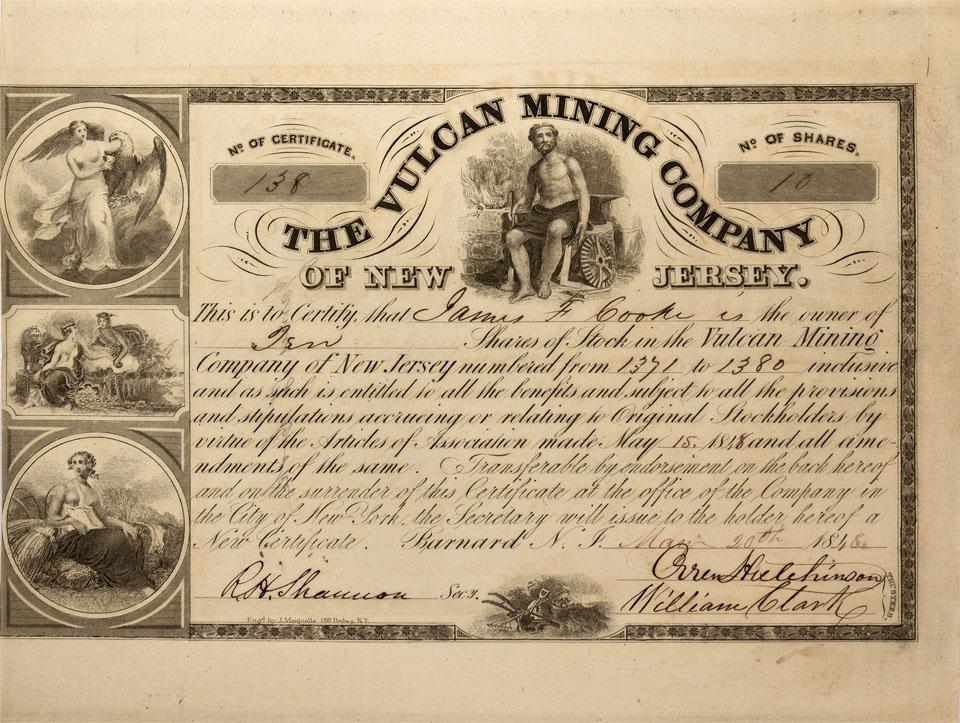 THE VULCAN MINING COMPANY
Nº OF CERTIFICATE.
138
Nº OF SHARES.
10
OF NEW JERSEY.
This is to Certify, that James F Cooke is the owner of
Ten Shares of Stock in the Vulcan Mining
Company of New Jersey numbered from 1371 to 1380 inclusive
and as such is entitled to all the benefits and subject to all the provisions
and stipulations accruing or relating to Original Stockholders by
virtue of the Articles of Association made May 15. 1848 and all ame-
ndments of the same. Transferable by endorsement on the back hereof
and on the surrender of this Certificate at the office of the Company in
the City of New York, the Secretary will issue to the holder hereof a
New Certificate. Barnard N. J. May 20th 1848
R.H. Shannon Secy.
Orren Hutchinson
William Clark
TRUSTEES
Engd. by J. Meignelle, 150 Brdwy. N.Y.